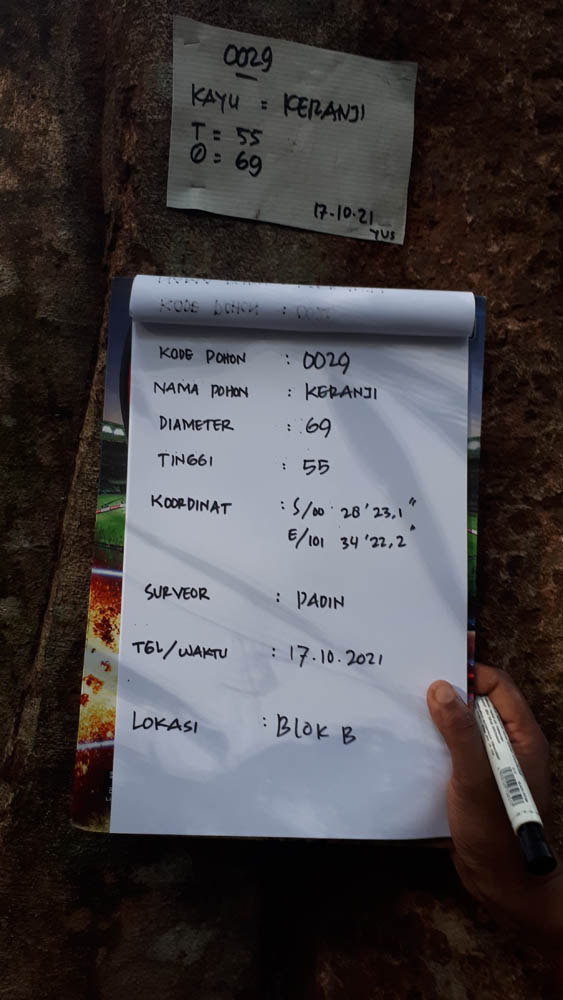 0029
KAYU = KERANJI
T = 55
Ø = 69
17-10-21
YUS
KODE POHON :
KODE POHON : 0029
NAMA POHON : KERANJI
DIAMETER : 69
TINGGI : 55
KOORDINAT : S/00° 28'23,1"
E/101 34'22,2"
SURVEOR : PADIN
TGL/WAKTU : 17.10.2021
LOKASI : BLOK B